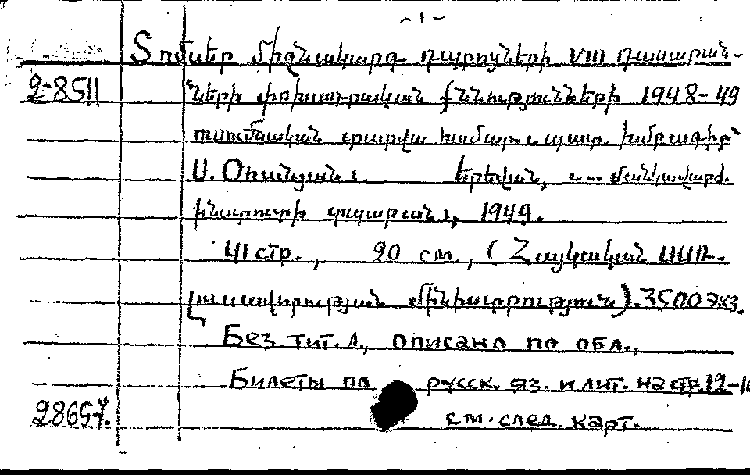 - 1 -
Տոմսեր միջնակարգ դպրոցների VIII դասարան-
2-8511 ների փոխադրական քննությունների 1948-49
ուսումնական տարվա համար: պատ. խմբագիր՝
Ս. Օհանյան: Երևան,
ինստիտուտի տպարան:, 1949.
41 стр., 20 см., (Հայկական ՍՍՌ.
լուսավորության մինիստրություն). 3500 экз.
Без тит. л., описана по обл.,
Билеты по русск. яз. и лит. на стр 12-
28657. см. след. карт.